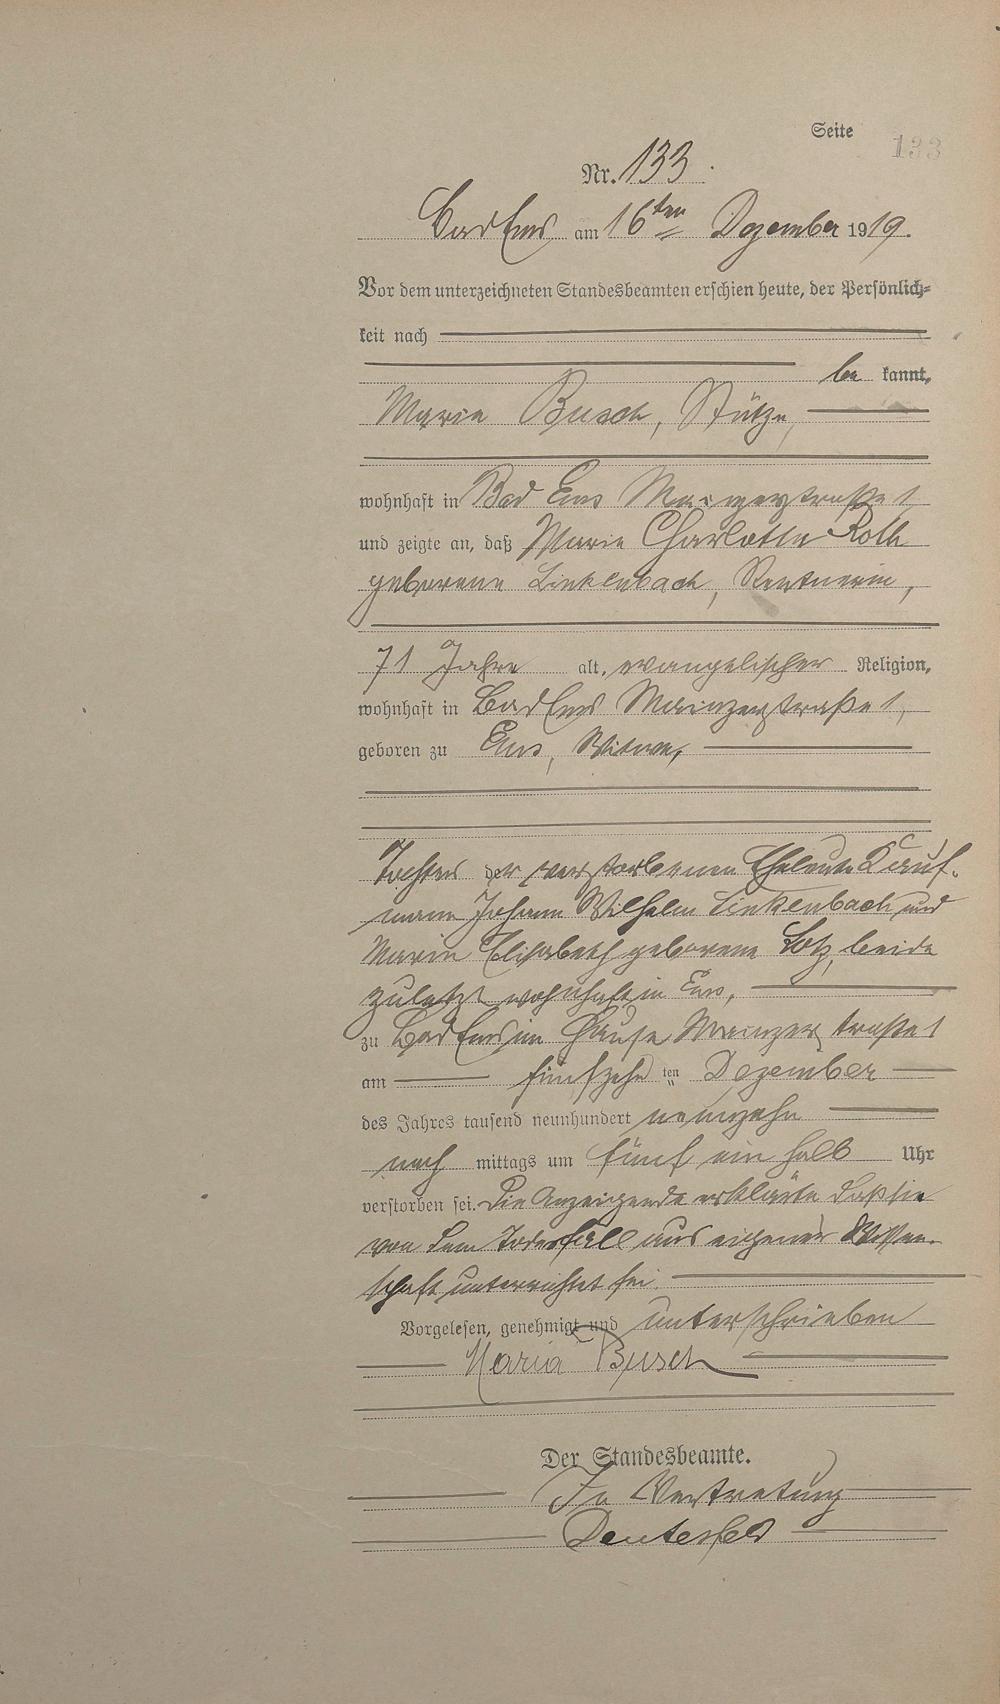 Seite 133
Nr. 133.
Bad Ems am 16ten Dezember 1919.
Vor dem unterzeichneten Standesbeamten erschien heute, der Persönlich-
keit nach
be kannt,
Marie Busch, Stütze,
wohnhaft in Bad Ems Mainzerstraße 1
und zeigte an, daß Marie Charlotte Roth
geborene Linkenbach, Rentnerin,
71 Jahre alt, evangelischer Religion,
wohnhaft in Bad Ems Mainzerstraße 1,
geboren zu Ems, Witwe,
Tochter der verstorbenen Eheleute Kauf-
mann Johann Wilhelm Linkenbach und
Marie Elisabeth geborene Lotz, beide
zuletzt wohnhaft in Ems,
zu Bad Ems im Hause Mainzerstraße 1
am fünfzehn ten Dezember
des Jahres tausend neunhundert neunzehn
nach mittags um fünf ein halb Uhr
verstorben sei. Die Anzeigende erklärte daß sie
von dem Todesfall aus eigener Wissen-
schaft unterrichtet sei.
Vorgelesen, genehmigt und unterschrieben
Maria Busch
Der Standesbeamte.
In Vertretung